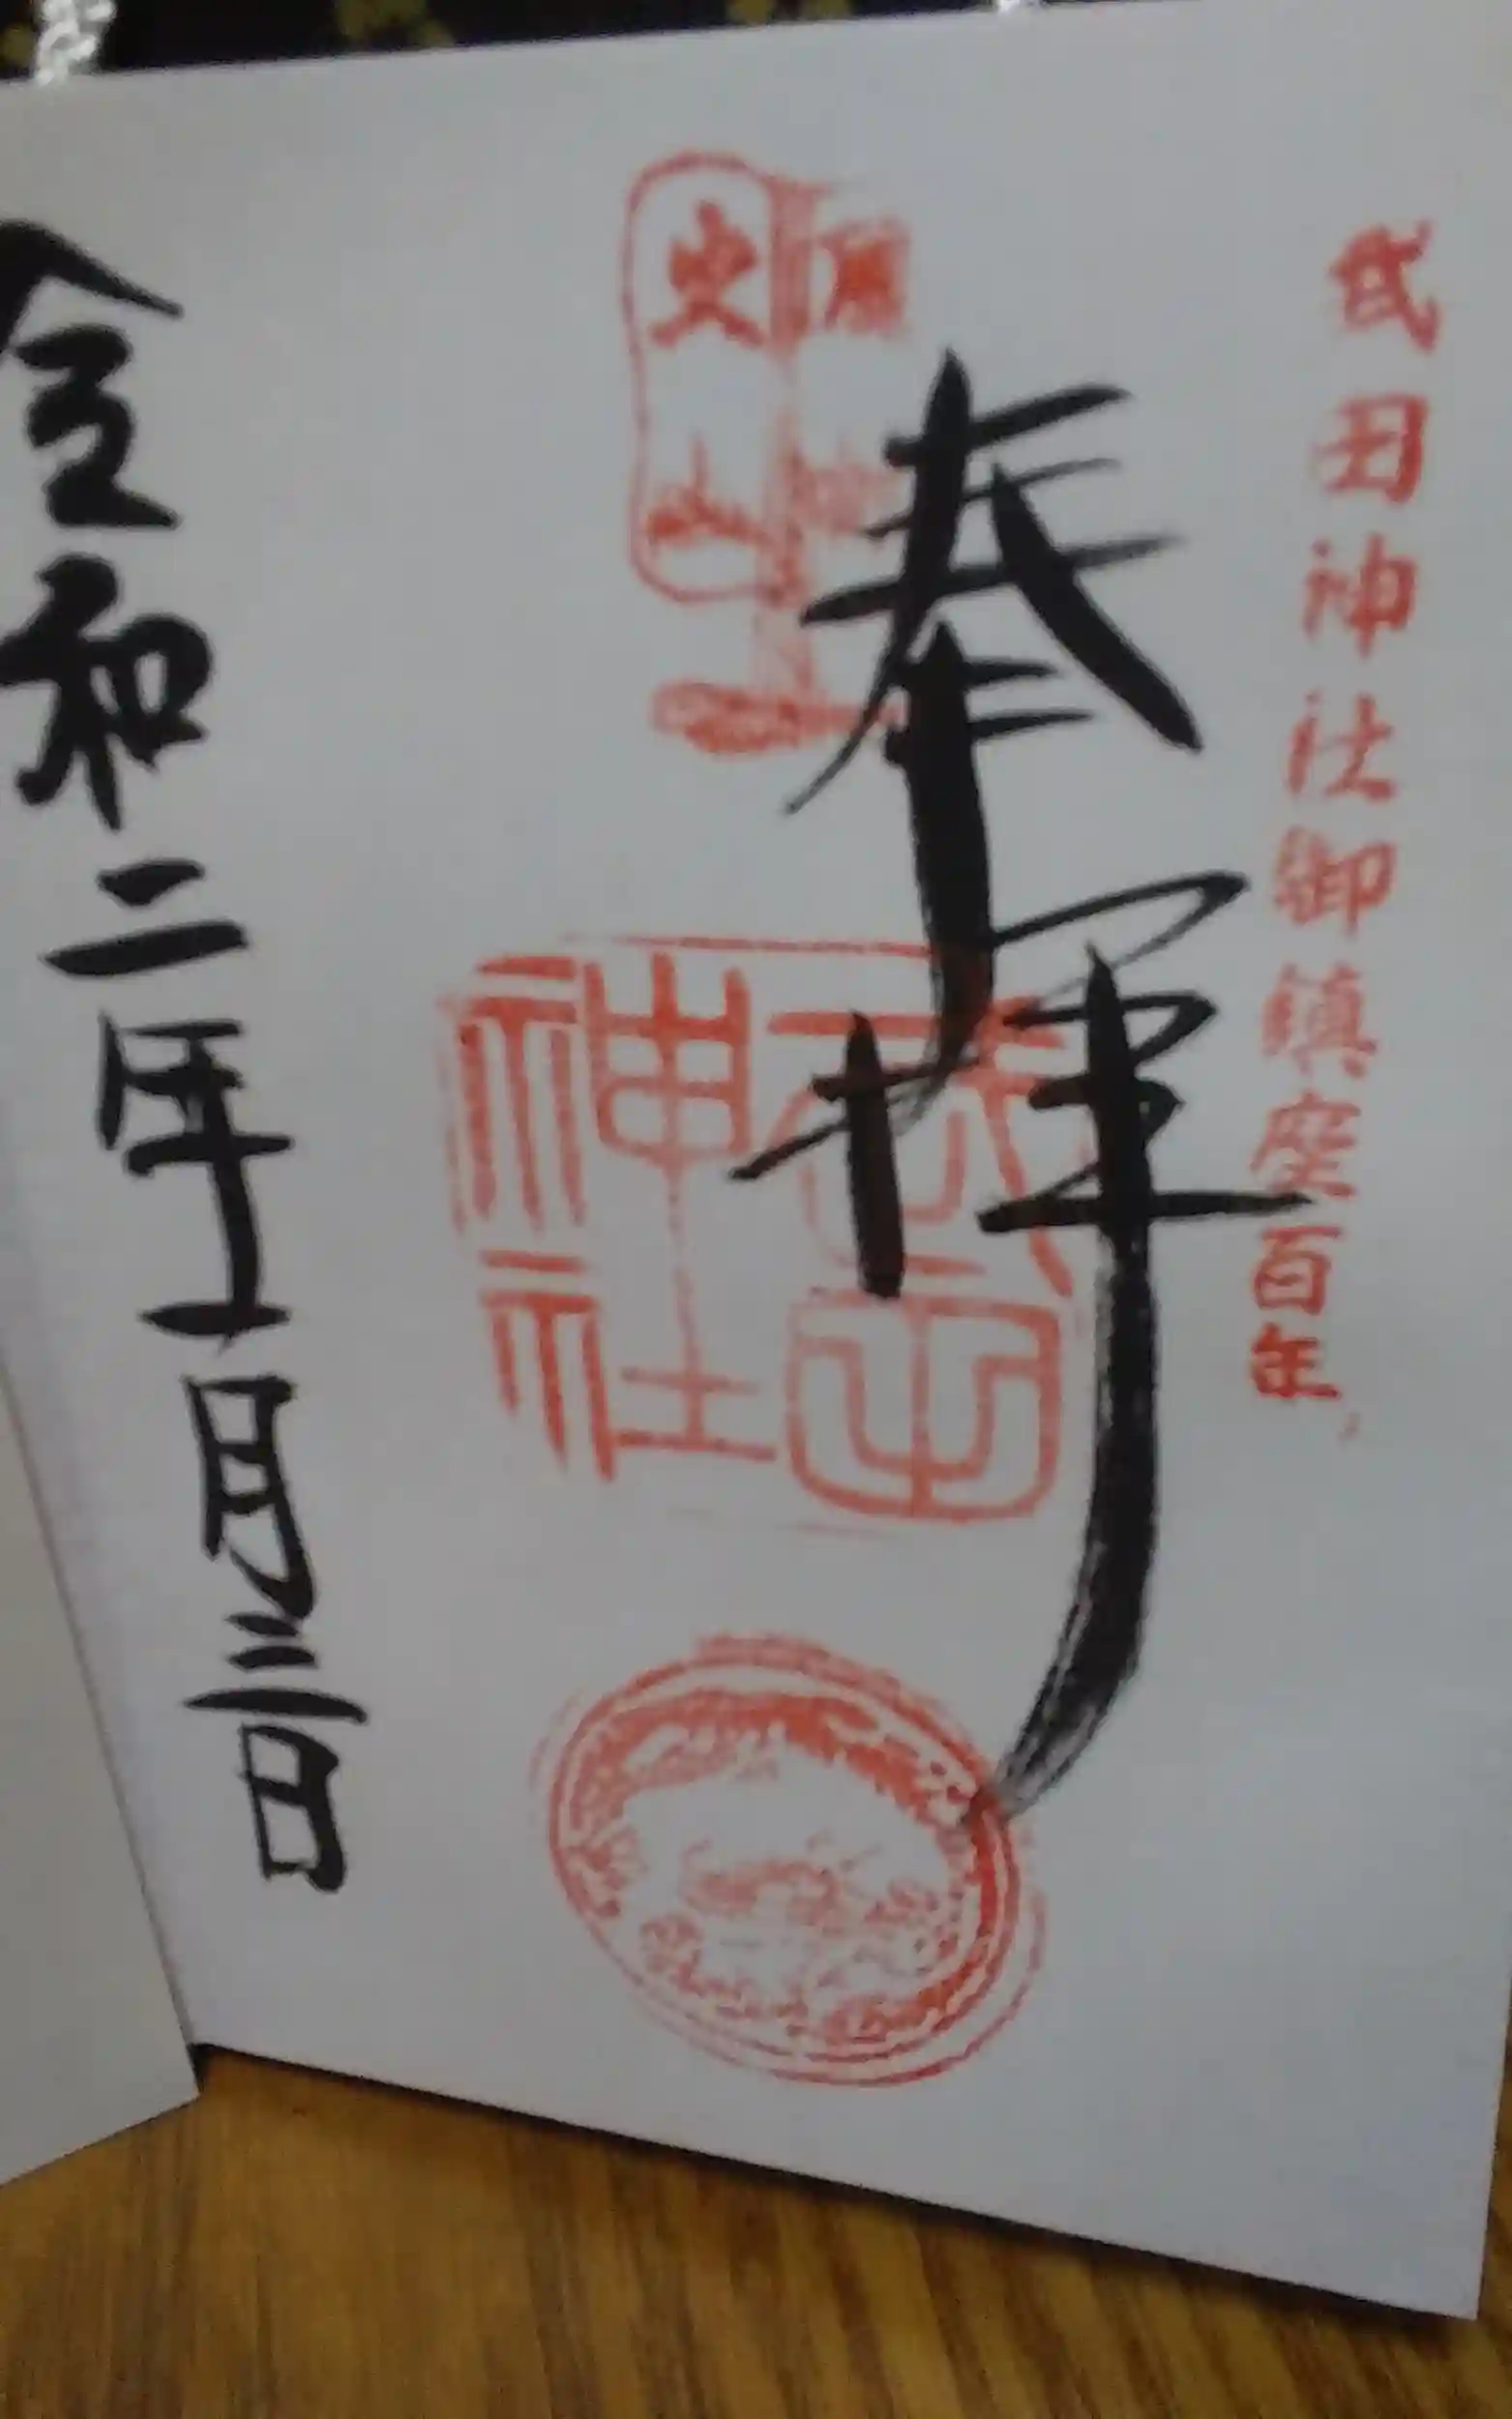 武田神社御鎮座百年
奉拝
風林
火山
武田
神社
令和二年十一月三日